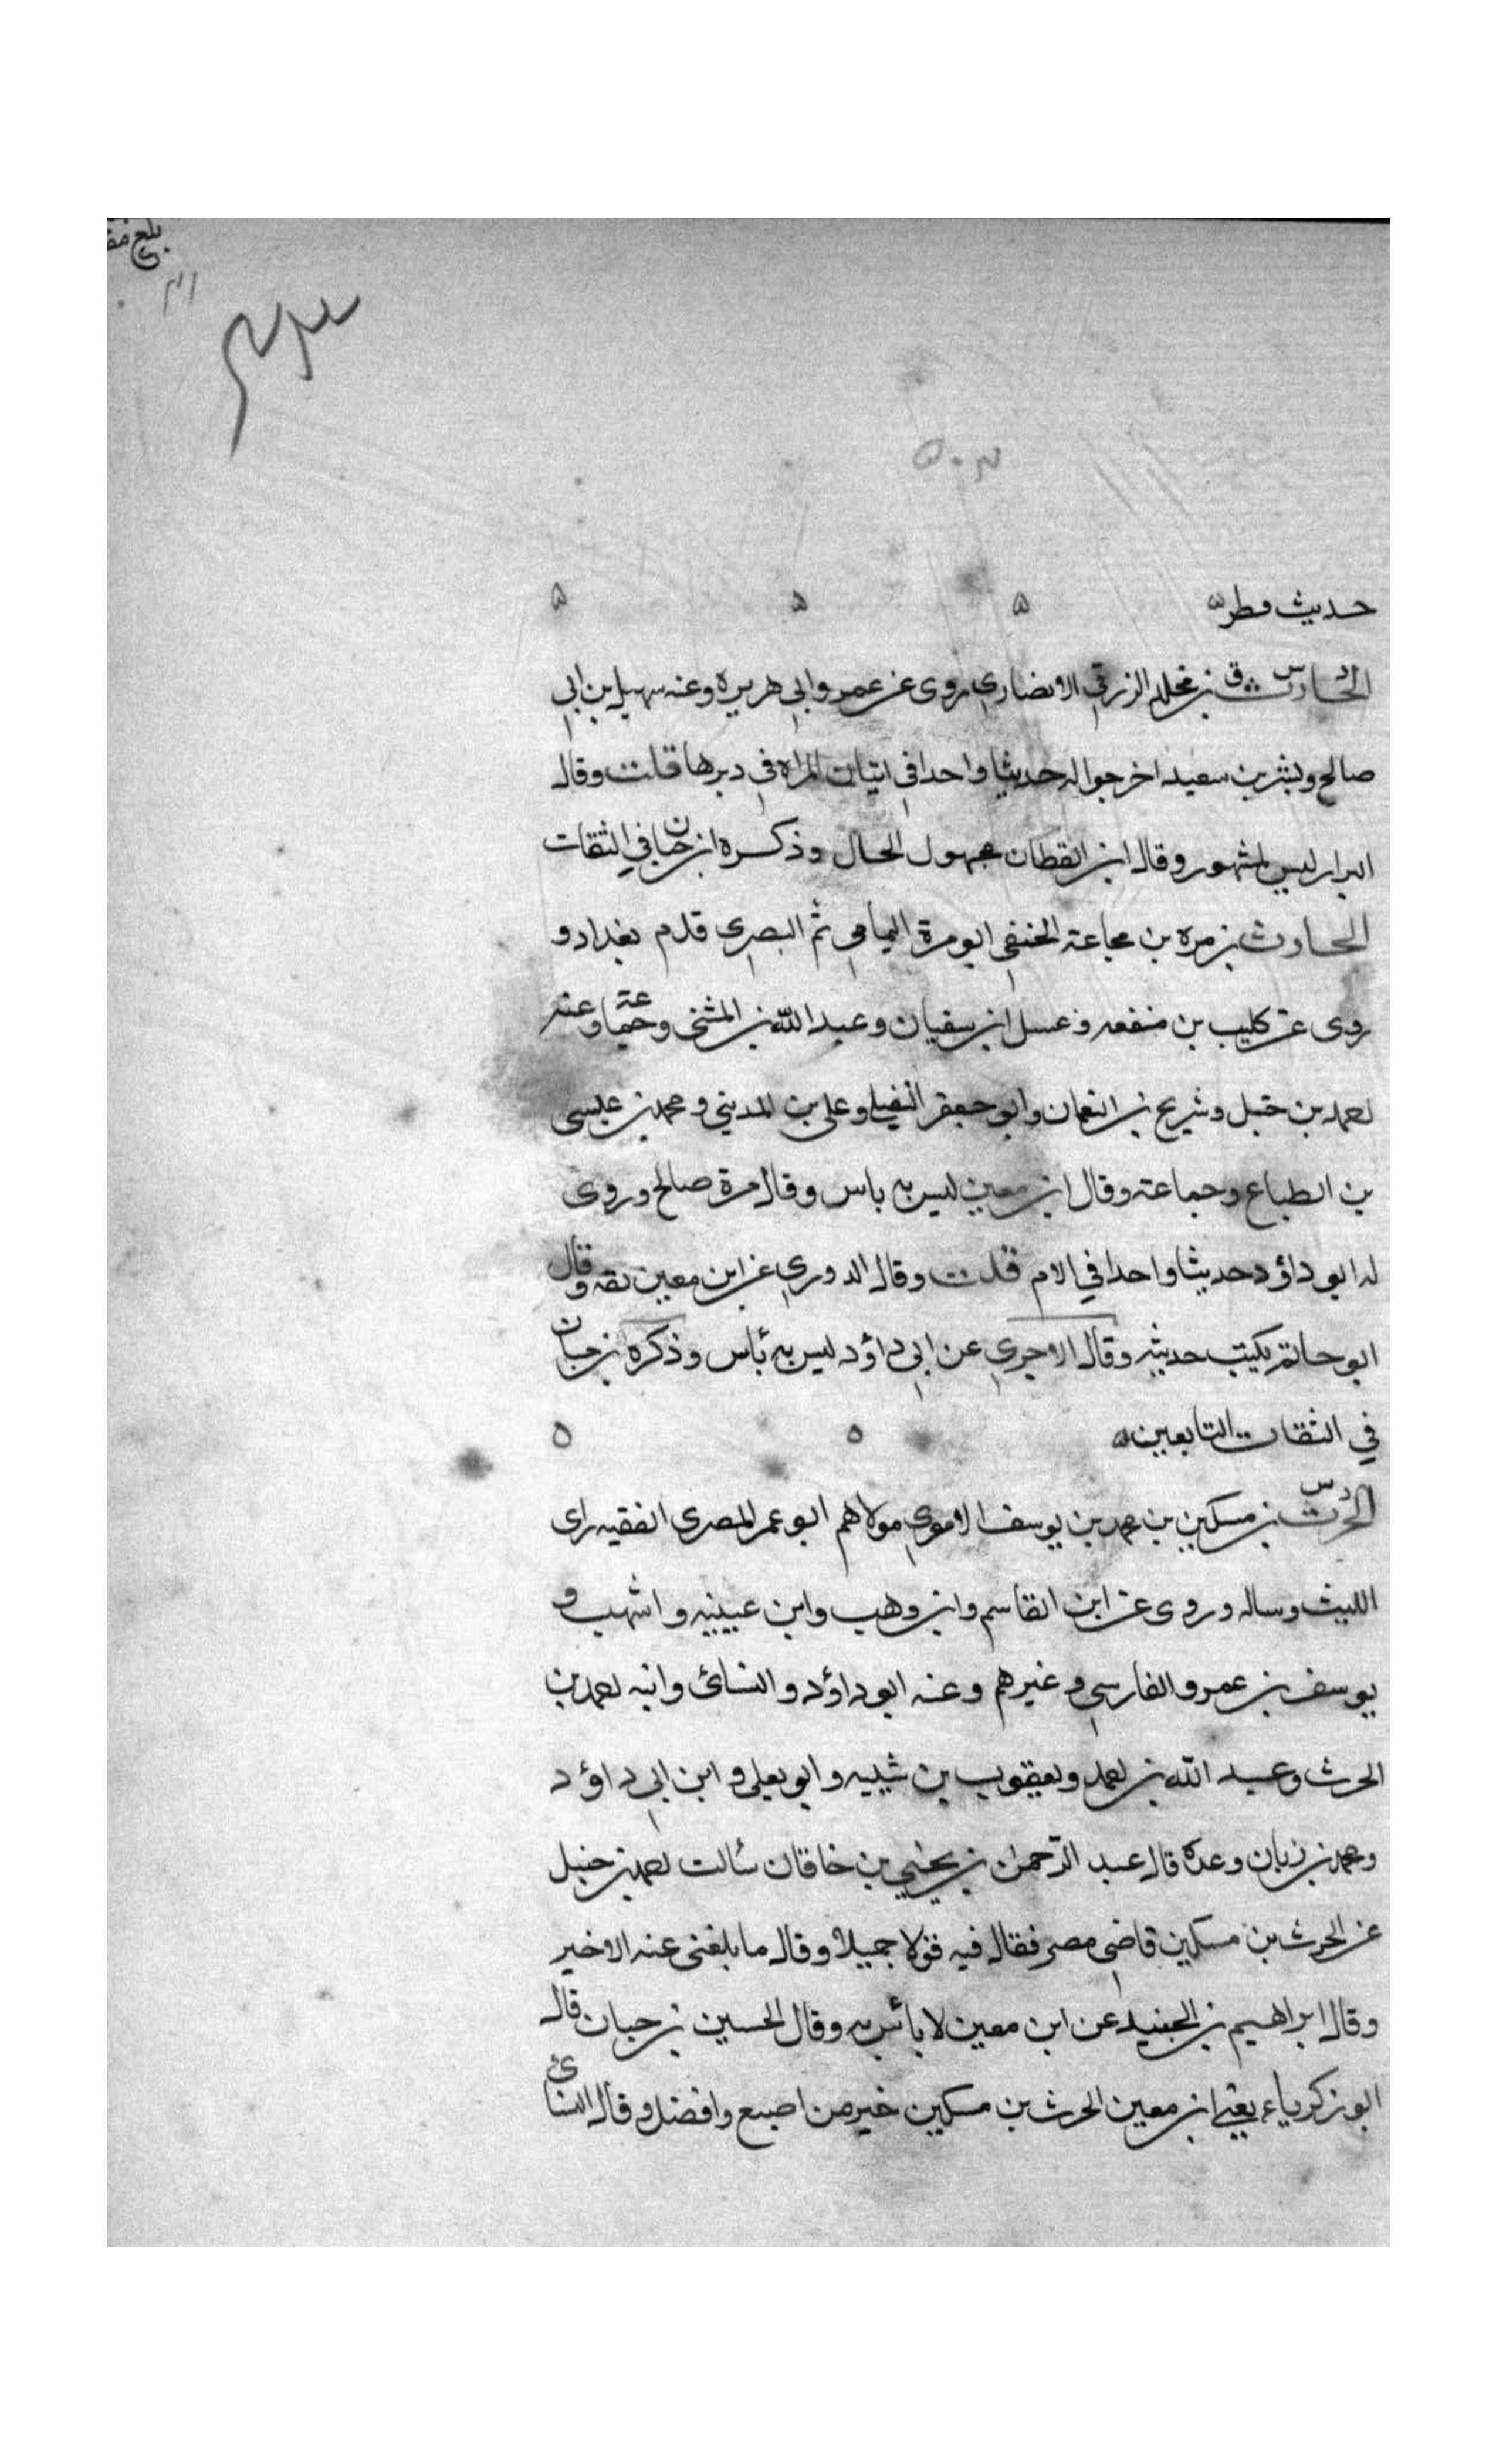 بلغ
٥٠٣
حديث مطر ه ه ه ه
الحارث د س ق بن مخلد الزرقي الانصاري روى عن عمر وابي هريرة وعنه سهيل بن ابي
صالح وبشر بن سعيد اخرجوا له حديثا واحدا في اتيان المراه في دبرها قلت وقال
البزار ليس بمشهور وقال ابن القطان مجهول الحال وذكره ابن حبان في الثقات
الحارث بن مره بن مجاعة الحنفي ابو مرة اليمامي ثم البصرى قدم بغداد و
روى عن كليب بن منفعه وعسل ابن سفيان وعبد الله بن المثنى وجماعة وعنه
احمد بن حنبل وشريح بن النعمان وابو جعفر النفيلي وعلى بن المديني ومحمد بن عيسى
بن الطباع وجماعة وقال ابن معين ليس به باس وقال مرة صالح وروى
له ابو داؤد حديثا واحدا في الام قلت وقال الدوري عن ابن معين ثقه وقال
ابو حاتم يكتب حديثه وقال الاجري عن ابي داؤد ليس به بأس وذكره بن حبان
في الثقات التابعين ه ه ه
الحرث د س بن مسكين بن محمد بن يوسف الاموي مولاهم ابو عمر المصرى الفقيه راى
الليث وساله وروى عن ابن القاسم وابن وهب وابن عيينه واشهب و
يوسف بن عمرو الفارسي وغيرهم وعنه ابو داؤد والنسائ وابنه احمد بن
الحرث وعبد الله بن احمد ويعقوب بن شيبه وابو يعلى وابن ابي داؤد
ومحمد بن زبان وعدة قال عبد الرحمن بن يحيي بن خاقان سألت احمد بن حنبل
عن الحرث بن مسكين قاضي مصر فقال فيه قولا جميلا وقال ما بلغني عنه الا خير
وقال ابراهيم بن الجنيد عن ابن معين لا بأس به وقال الحسين بن حبان قال
ابو زكرياء يعني ابن معين الحرث بن مسكين خير من اصبغ وافضل وقال النسائ